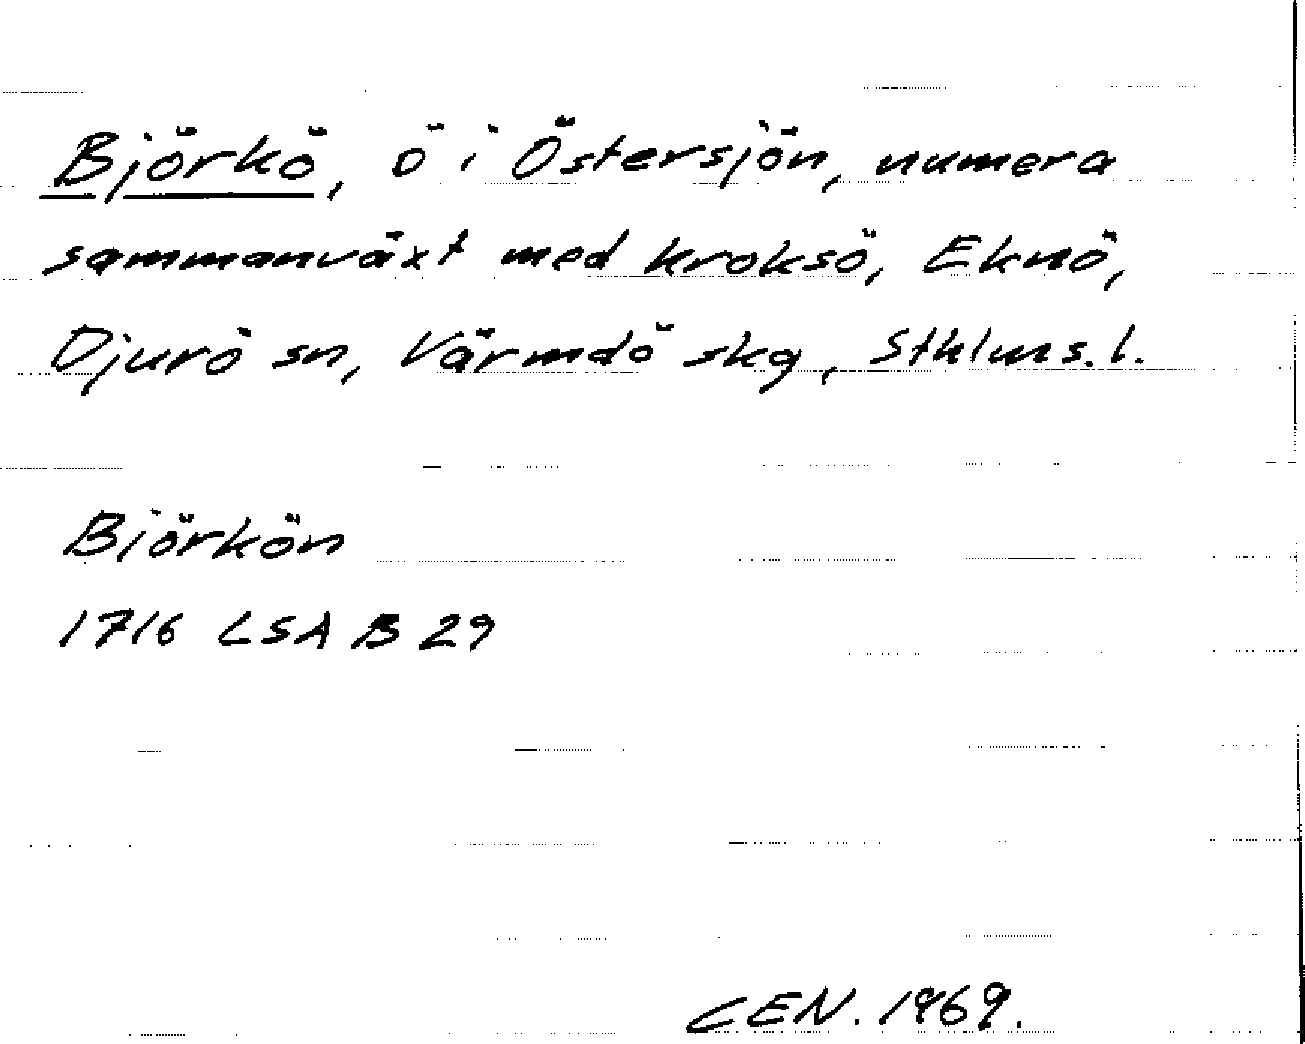 Björkö, ö i Östersjön, numera
sammanväxt med Kroksö, Eknö,
Djurö sn, Värmdö skg, Sthlms. l.
Biörkön
1716 LSA B 29
CEN. 1969.